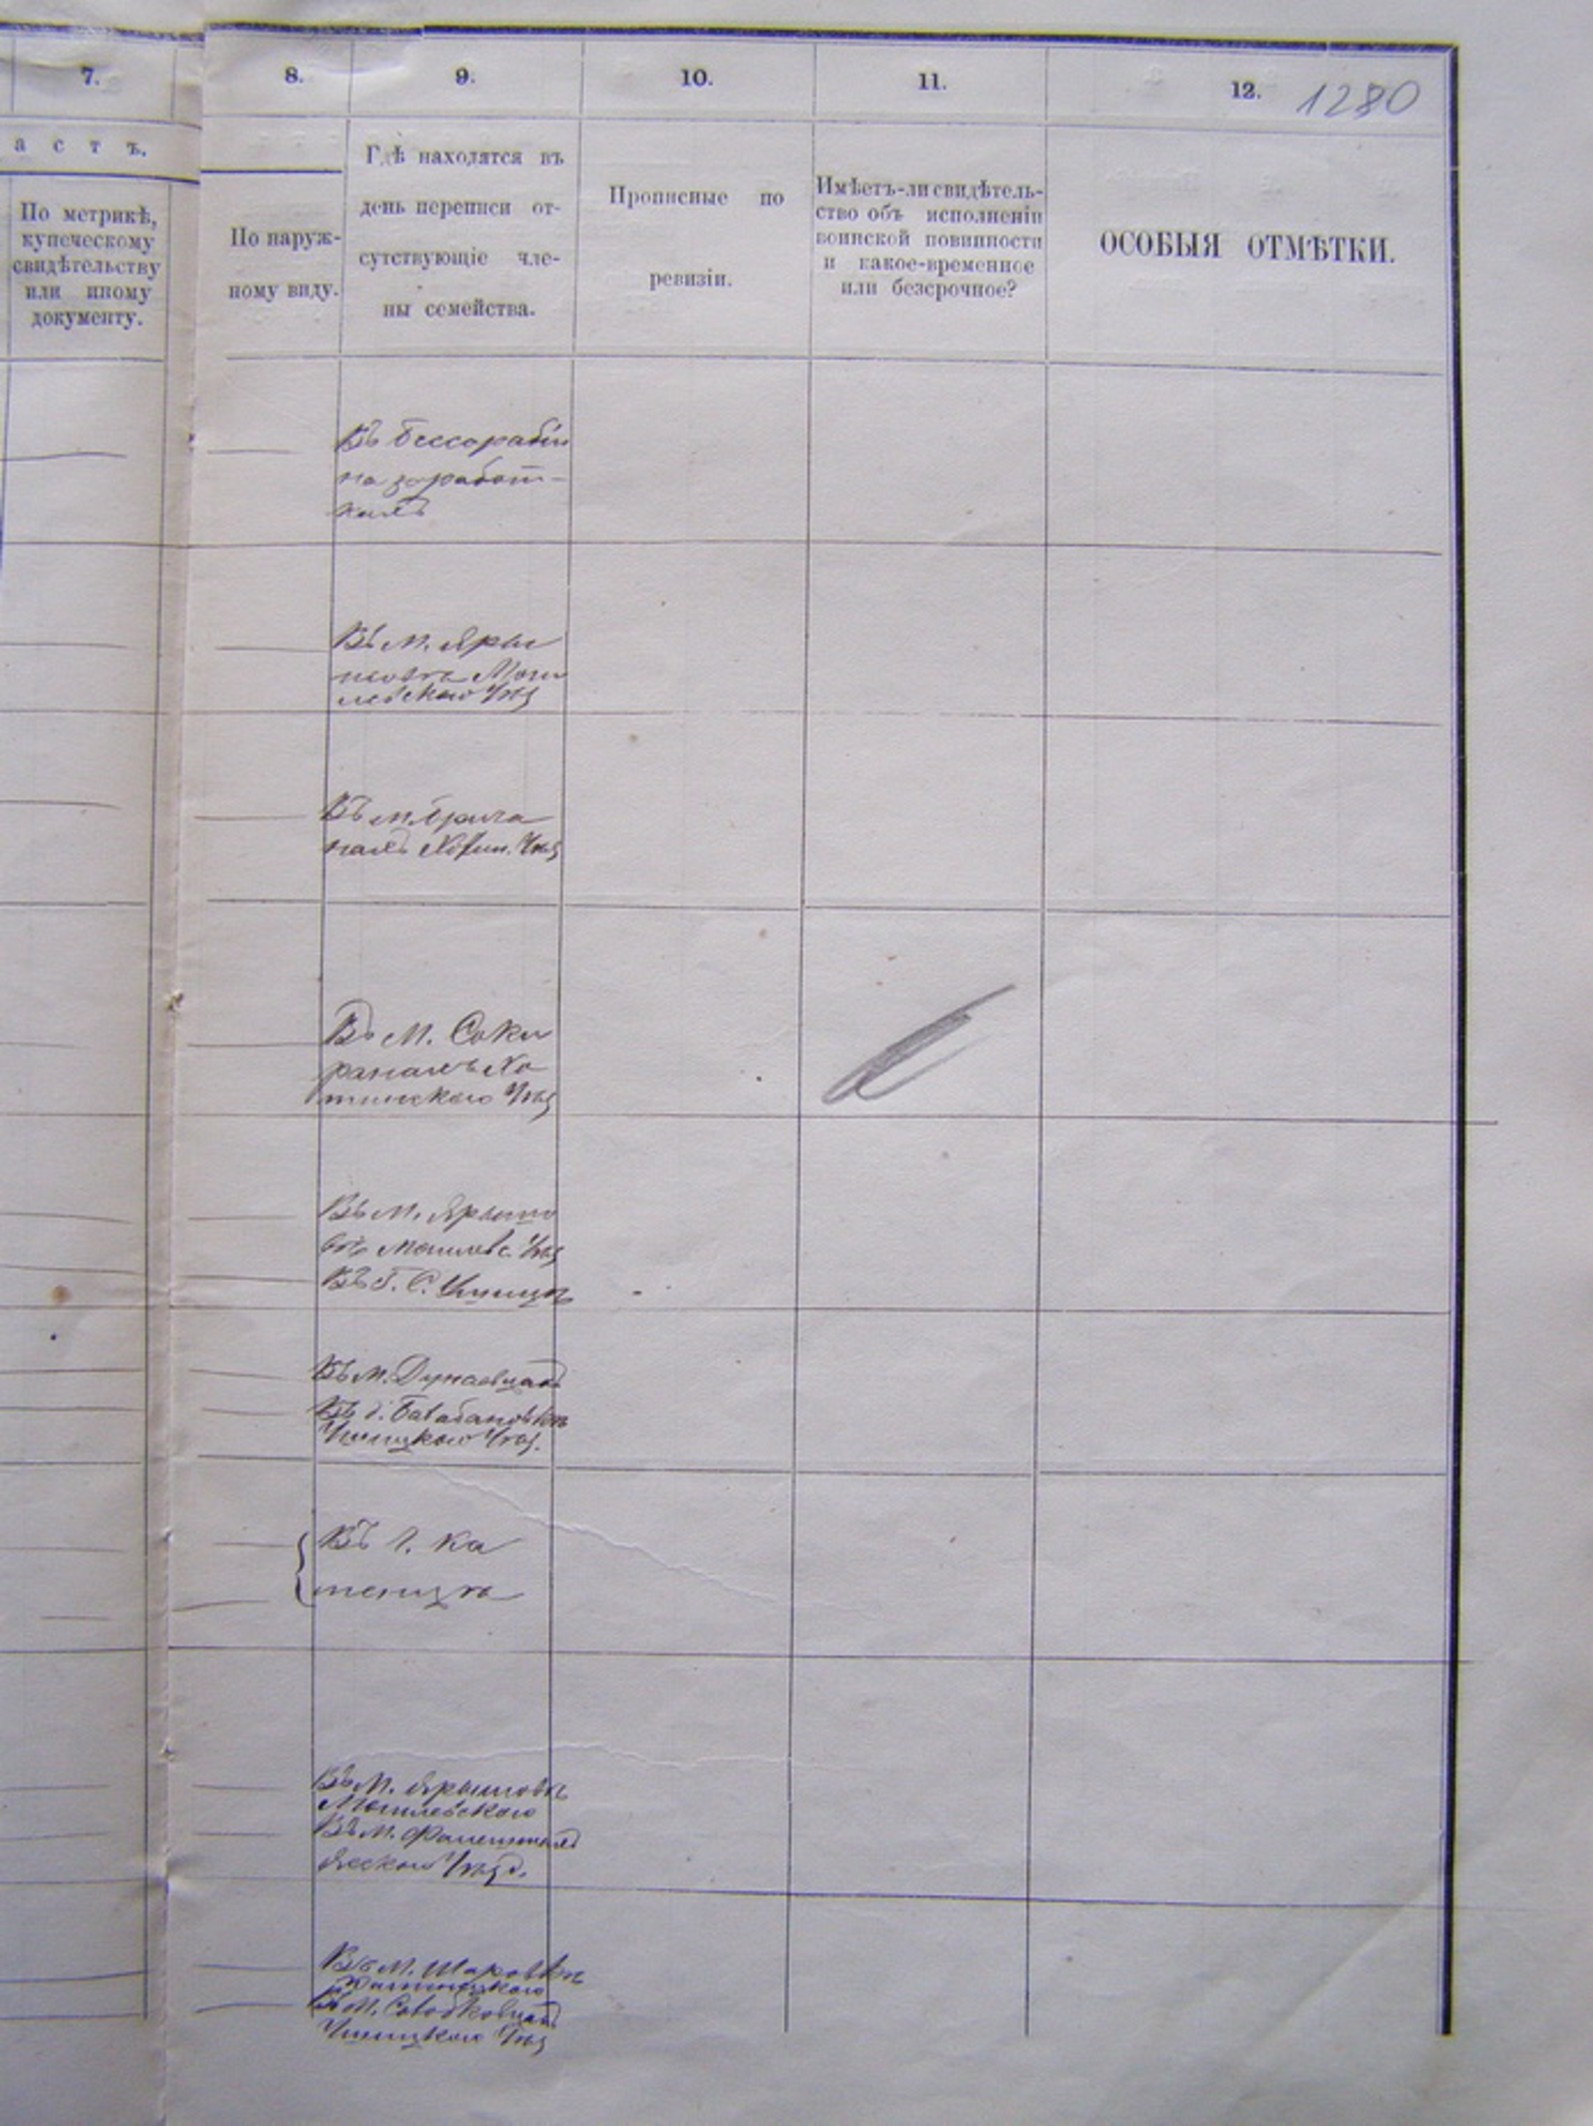 7. 8. 9. 10. 11. 12. 1280
а с т ъ.
По метрикѣ,
купеческому
свидѣтельству
или иному
документу.
По наруж-
ному виду.
Гдѣ находятся въ
день переписи от-
сутствующіе чле-
ны семейства.
Прописные по
ревизіи.
Имѣетъ-ли свидѣтель-
ство объ исполненіи
воинской повинности
и какое-временное
или безсрочное?
ОСОБЫЯ ОТМѢТКИ.
Въ Бессарабіи
на заработ-
кахъ
Въ м. Яры
шовѣ Моги
левскаго Уѣз
Въ м. Брича
нахъ Хотин. Уѣз
Въ М. Соки
ранахъ Хо
тинскаго Уѣз
Въ М. Ярышо
вѣ Могилевс. Уѣз
Въ Г. С. Ушицѣ
Въ М. Дунаевцахъ
Въ Балабановкѣ
Ушицкаго Уѣз.
Въ Г. Ка
менцѣ
Въ М. Ярышовѣ
Могилевскаго
Въ М. Фалештахъ
Ясскаго Уѣзд.
Въ М. Шаровкѣ
Въ М. Солобковцахъ
Ушицкаго Уѣз